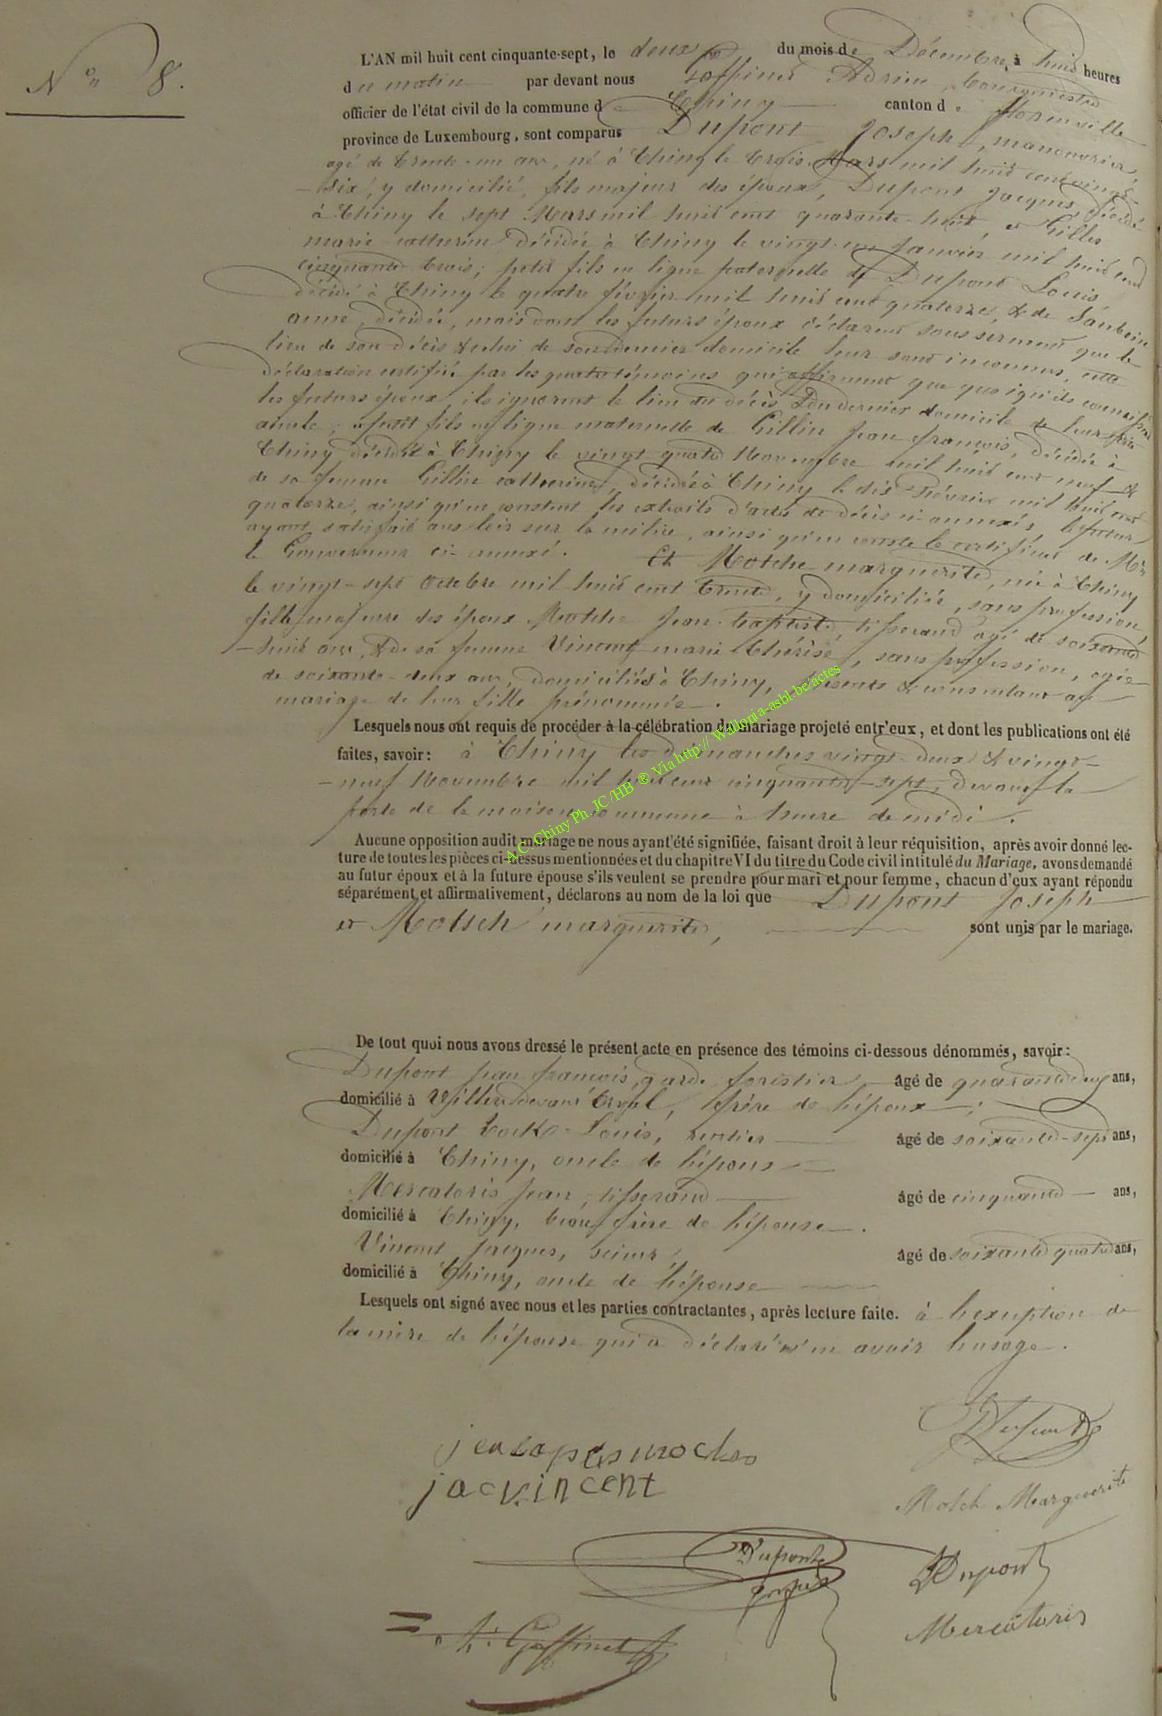 N° 8.
L'AN mil huit cent cinquante-sept, le deux du mois de Décembre, à huit heures
du matin par devant nous Goffinet Adrien, bourgmestre
officier de l'état civil de la commune de Chiny canton de Florenville
province de Luxembourg, sont comparus Dupont Joseph, manouvrier,
agé de trente-un ans, né à Chiny le trois Mars mil huit cent vingt-
-six, y domicilié, fils majeur des époux, Dupont Jacques décédé
à Chiny le sept Mars mil huit cent quarante-huit, et Gillet
marie catherine décédée à Chiny le vingt-un Janvier mil huit cent
cinquante trois; petit fils en ligne paternelle de Dupont Louis,
décédé à Chiny le quatre février mil huit cent quatorze, & de
anne, décédée, mais dont les futurs époux déclarent sous serment que le
lieu de son décès & celui de son dernier domicile leur sont inconnus, cette
déclaration certifiée par les quatre témoins qui affirment que quoiqu'ils connaissent
les futurs époux, ils ignorent le lieu du décès & du dernier domicile de leur
aieule; & petit fils en ligne maternelle de Gillin Jean françois, décédé à
Chiny le vingt quatre Novembre mil huit cent neuf &
de sa femme catherine, décédée à Chiny le dix février mil huit cent
quatorze, ainsi qu'en constent les extraits d'actes de décès ci-annexés, le futur
ayant satisfait aux lois sur la milice, ainsi qu'en conste le certificat de Mr
le Gouverneur ci-annexé. Et Motche marguerite, née à Chiny
le vingt-sept Octobre mil huit cent trente, y domiciliée, sans profession,
fille majeure des époux Motche Jean-baptiste, tisserand agé de soixante
-huit ans, & de sa femme Vincent marie thérèse, sans profession, agée
de soixante-deux ans, domiciliés à Chiny, présents & consentant au
mariage de leur fille prénommée.
Lesquels nous ont requis de procéder à la célébration du mariage projeté entr'eux, et dont les publications ont été
faites, savoir: à Chiny les dimanches vingt-deux & vingt-
-neuf Novembre mil huit cent cinquante-sept, devant la
porte de la maison commune à heure de midi.
Aucune opposition audit mariage ne nous ayant été signifiée, faisant droit à leur réquisition, après avoir donné lec-
ture de toutes les pièces ci-dessus mentionnées et du chapitre VI du titre du Code civil intitulé du Mariage, avons demandé
au futur époux et à la future épouse s'ils veulent se prendre pour mari et pour femme, chacun d'eux ayant répondu
séparément et affirmativement, déclarons au nom de la loi que Dupont Joseph
et Motsch marguerite, sont unis par le mariage.
A.C. Chiny Ph. JC/HB ® Via http:// Wallonia-asbl.be/actes
De tout quoi nous avons dressé le présent acte en présence des témoins ci-dessous dénommés, savoir:
Dupont Jean françois, garde forestier âgé de quarante deux ans,
domicilié à Villers devant Orval, frère de l'époux;
Dupont Louis, rentier âgé de soixante-sept ans,
domicilié à Chiny, oncle de l'époux
Mercatoris Jean, tisserand âgé de cinquante ans,
domicilié à Chiny, beau frère de l'épouse.
Vincent Jacques, scieur, âgé de soixante quatre ans,
domicilié à Chiny, oncle de l'épouse
Lesquels ont signé avec nous et les parties contractantes, après lecture faite. à l'exception de
la mère de l'épouse qui a déclaré n'en avoir l'usage.
Dupont
jacvincent
Motch Marguerite
Dupont
Dupont
Mercatoris
A. Goffinet